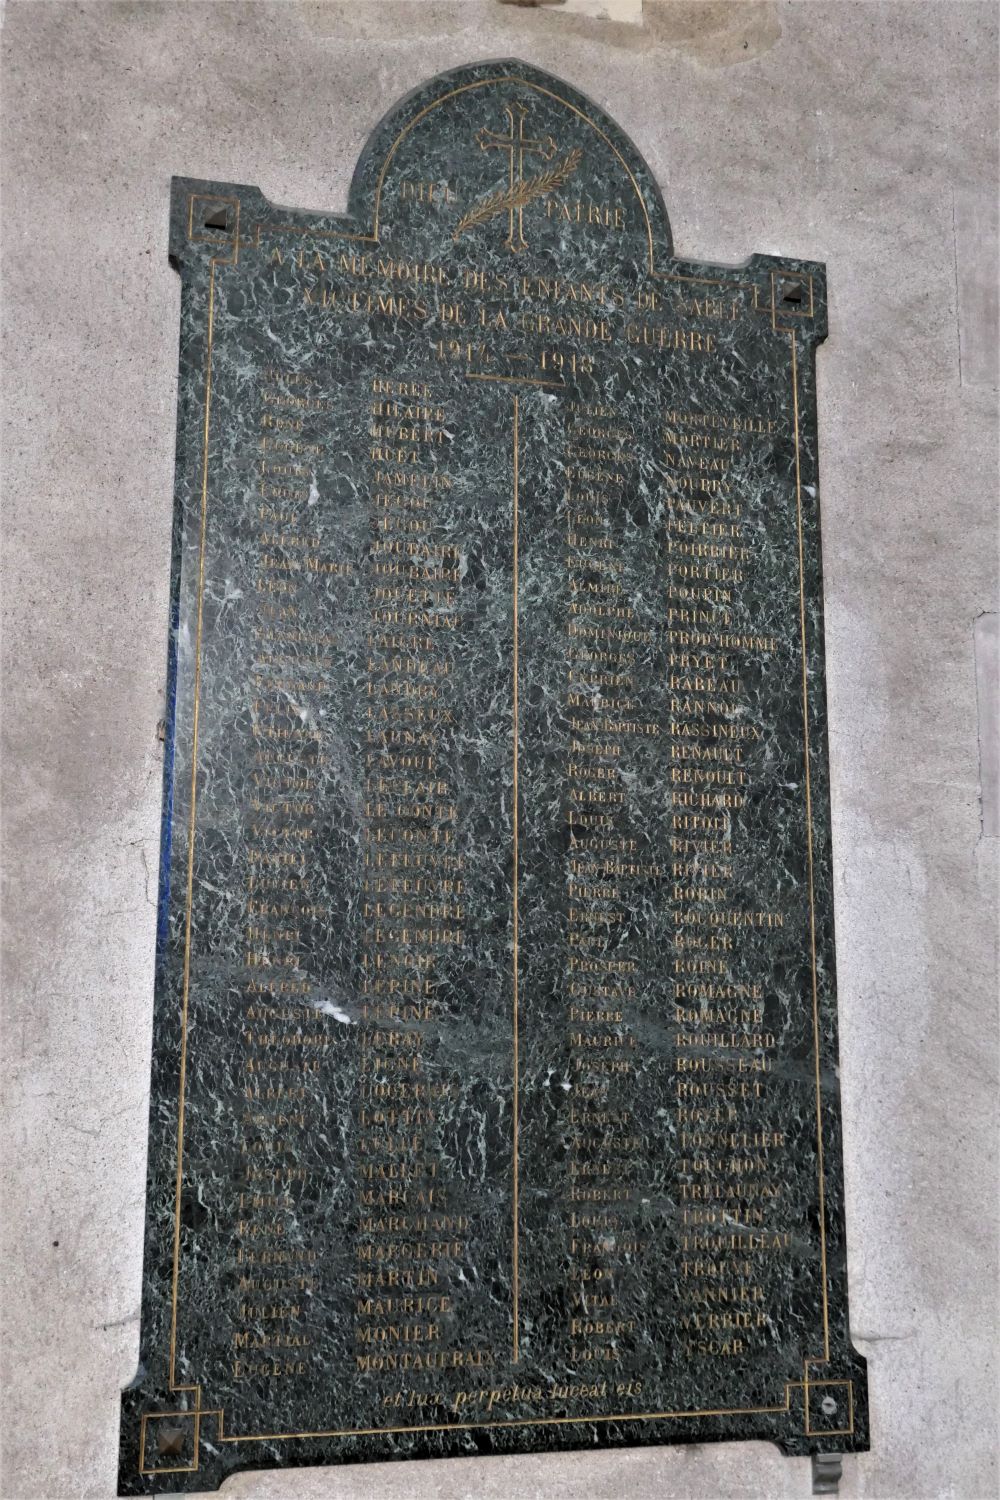 DIEU PATRIE
A LA MÉMOIRE DES ENFANTS DE SABLÉ
VICTIMES DE LA GRANDE GUERRE
1914 — 1918
JULES HERÉE
GEORGES HILAIRE
RENÉ HUBERT
HUET
LOUIS JAMELIN
LOUIS
PAUL JEGOU
ALFRED JOUBAIRE
JEAN-MARIE JOUBAIRE
JOUETTE
JEAN JOURNIAC
LAIGRE
LANDEAU
LANDRY
LASSEUX
LAUNAY
AUGUSTE LAVOUÉ
VICTOR LECLAIR
VICTOR LE CONTE
VICTOR LECONTE
DANIEL LEFEUVRE
LUCIEN LEFEUVRE
FRANÇOIS LEGENDRE
HENRI LEGENDRE
HENRI
ALFRED LÉPINE
AUGUSTE LÉPINE
THÉODORE LERAY
AUGUSTE LIGNÉ
ALBERT
LOTTIN
LOUIS
JOSEPH MALLET
LOUIS MARÇAIS
RENÉ MARCHAND
FERNAND MARGERIE
AUGUSTE MARTIN
JULIEN MAURICE
MARTIAL MONIER
EUGÈNE MONTAUFRAIX
JULIEN MONTÉVEILLE
GEORGES MORTIER
GEORGES NAVEAU
EUGÈNE NOURRY
LOUIS PAUVERT
LÉON PELTIER
HENRI POIRRIER
EUGÈNE PORTIER
ALMIRE POUPIN
ADOLPHE PRINCE
DOMINIQUE PROD'HOMME
GEORGES PRYET
CYPRIEN RABEAU
MAURICE RANNOU
JEAN-BAPTISTE RASSINEUX
JOSEPH RENAULT
ROGER RENOULT
ALBERT RICHARD
LOUIS RITOUL
AUGUSTE RIVIER
JEAN-BAPTISTE RIVIER
PIERRE ROBIN
ERNEST ROCQUENTIN
PAUL ROGER
PROSPER ROINÉ
GUSTAVE ROMAGNÉ
PIERRE ROMAGNÉ
MAURICE ROUILLARD
JOSEPH ROUSSEAU
ROUSSET
ERNEST ROYER
AUGUSTE TONNELIER
ERNEST TOUCHON
ROBERT TRELAUNAY
LOUIS TROTTIN
FRANÇOIS TROUILLEAU
LÉON TROUVÉ
VITAL VANNIER
ROBERT VERRIER
LOUIS YSCAR
et lux perpetua luceat eis